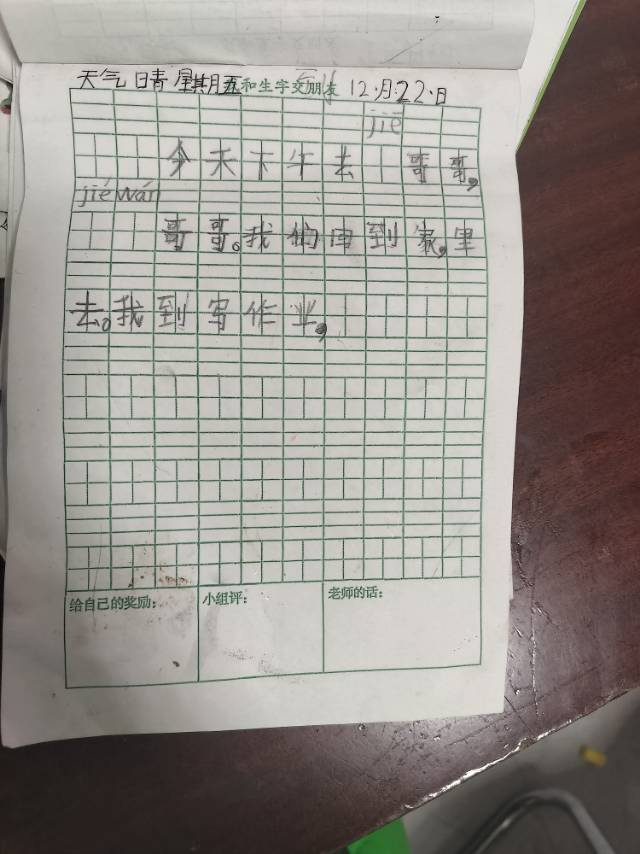 天气晴星期五和生字交朋友 12月22日
jiē
今天下午去 哥哥,
jié wán
哥哥。我们回到家,里
去。我到写作业,
给自己的奖励: 小组评: 老师的话: